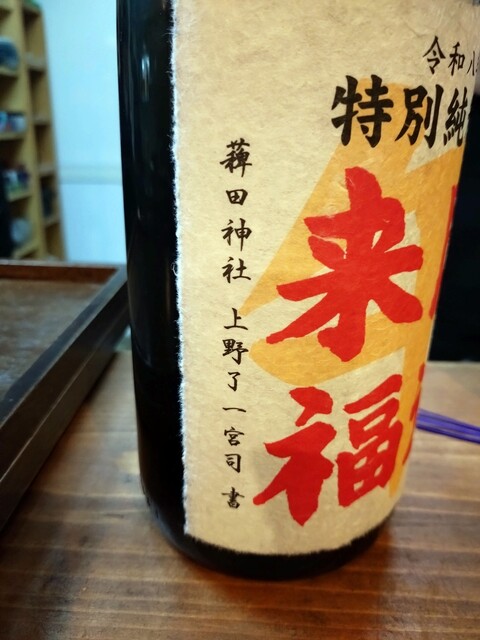 令和八
特別純
来
福
薭田神社 上野了一宮司 書